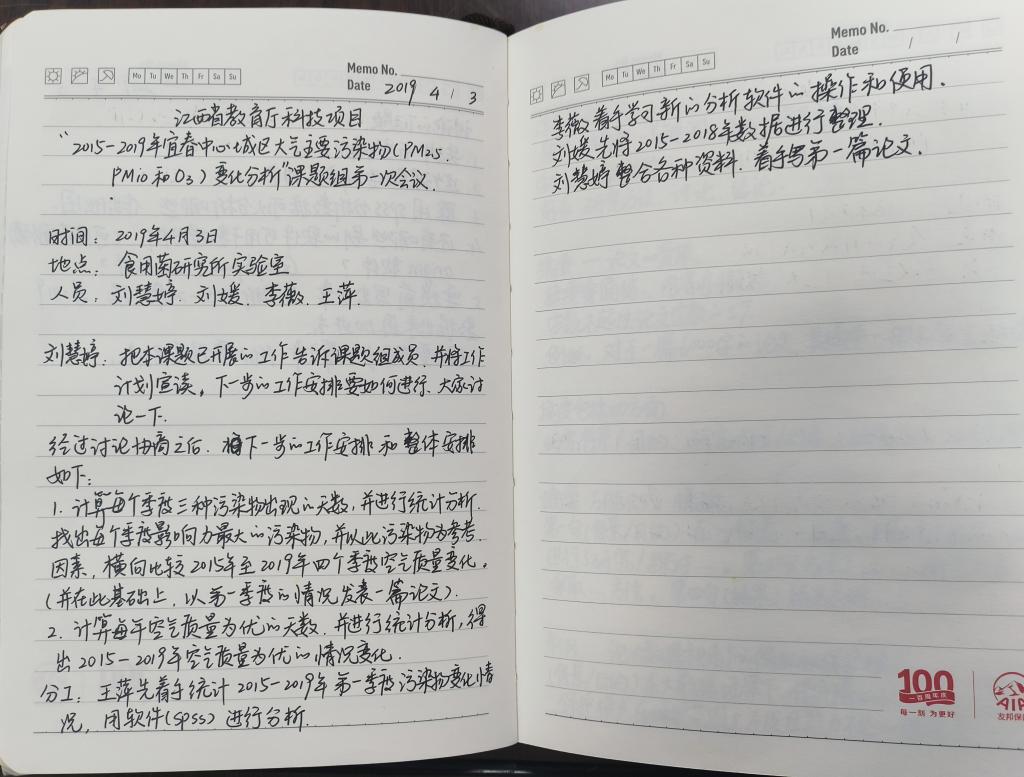 Mo Tu We Th Fr Sa Su
Memo No.
Date 2019 4 / 3
江西省教育厅科技项目
“2015-2019年宜春中心城区大气主要污染物(PM2.5.
PM10和O3)变化分析”课题组第一次会议.
时间: 2019年4月3日
地点: 食用菌研究所实验室
人员: 刘慧婷. 刘媛. 李薇. 王萍.
刘慧婷: 把本课题已开展的工作告诉课题组成员, 并将工作
计划宣读, 下一步的工作安排要如何进行、大家讨
论一下.
经过讨论协商之后. 将下一步的工作安排和整体安排
如下:
1. 计算每个季度三种污染物出现的天数, 并进行统计分析.
找出每个季度影响力最大的污染物, 并以此污染物为参考.
因素, 横向比较2015年至2019年四个季度空气质量变化。
(并在此基础上, 以第一季度的情况发表一篇论文).
2. 计算每年空气质量为优的天数. 并进行统计分析, 得
出2015-2019年空气质量为优的情况变化.
分工: 王萍先着手统计2015-2019年第一季度污染物变化情
况, 用软件(spss)进行分析.
Mo Tu We Th Fr Sa Su
Memo No.
Date / /
李薇着手学习新的分析软件的操作和使用.
刘媛先将2015-2018年数据进行整理.
刘慧婷整合各种资料. 着手写第一篇论文.
100
一百周年庆
每一刻 为更好
AIA
友邦保